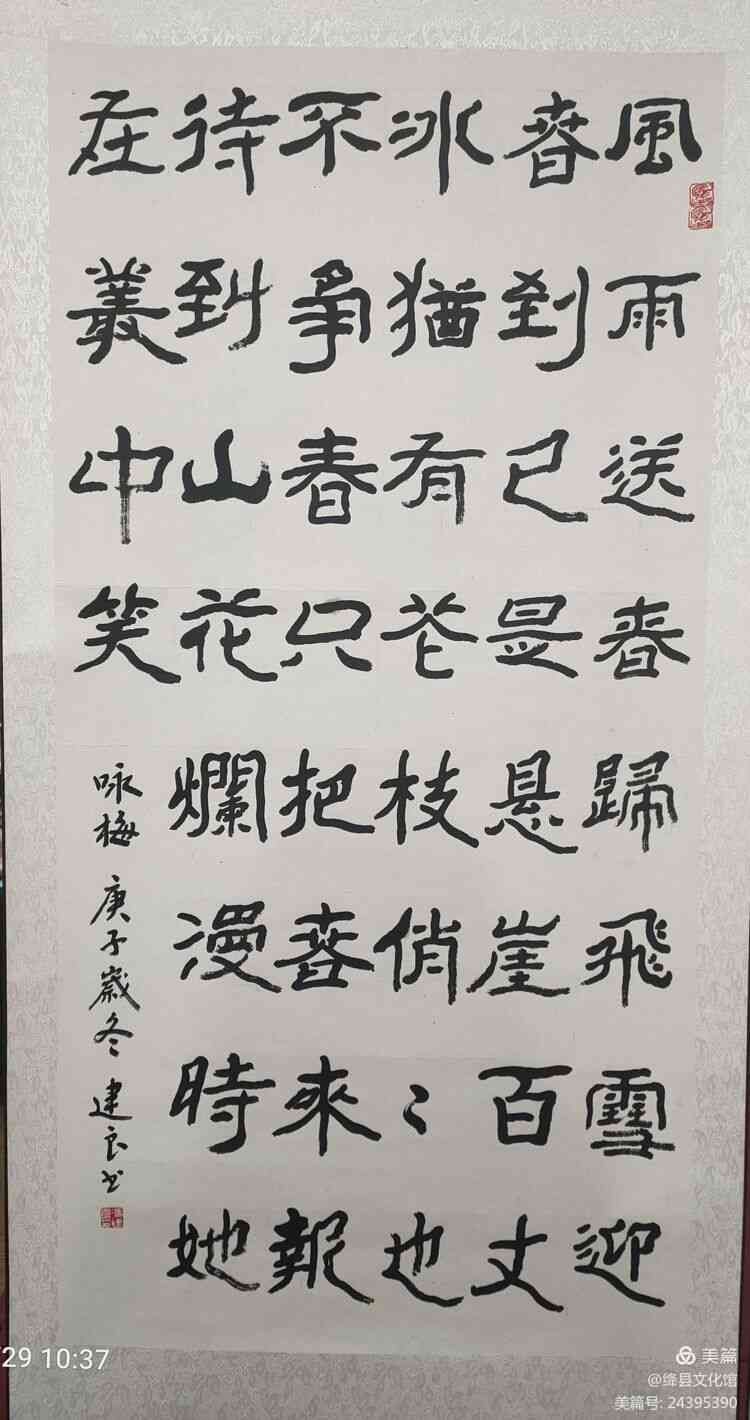 風雨送春歸飛雪迎
春到已是悬崖百丈
冰猶有花枝俏〻也
不爭春只把春來報
待到山花爛漫時她
在叢中笑
咏梅 庚子歲冬 建良书
29 10:37
美篇
@绛县文化馆
美篇号: 24395390